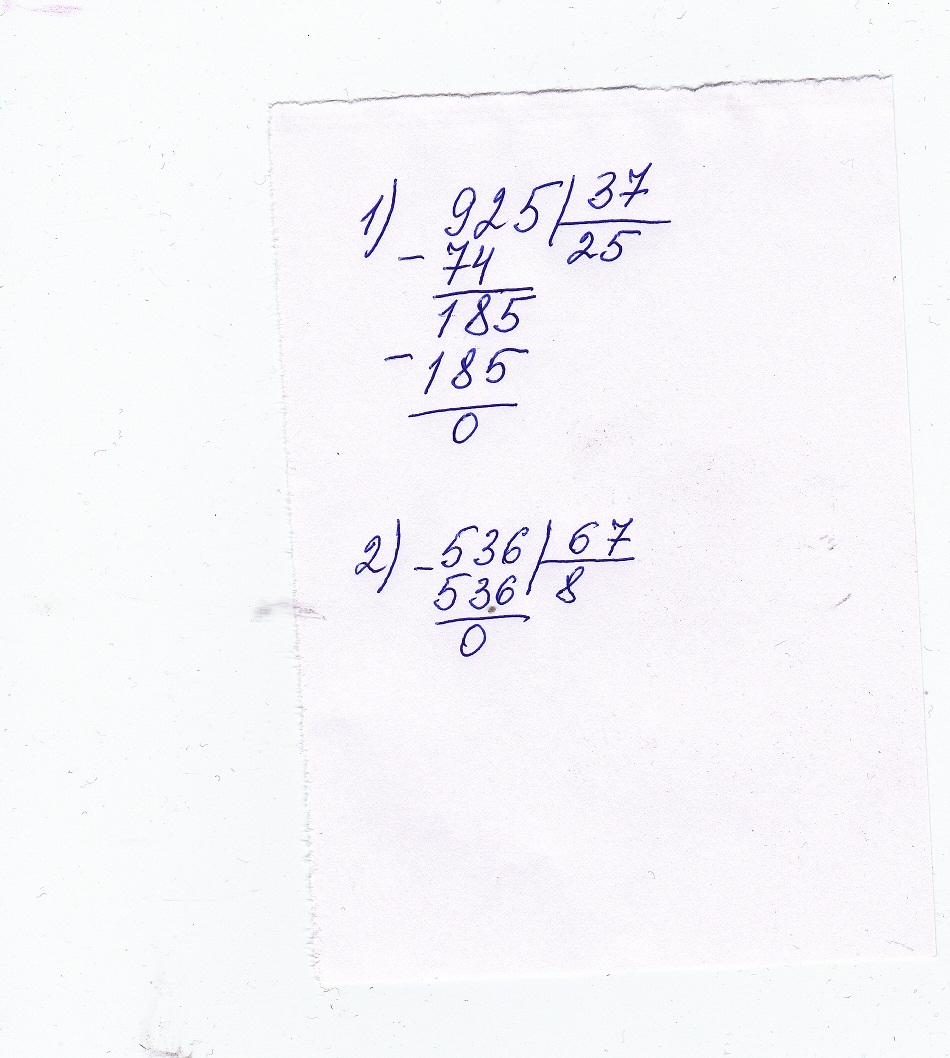 1) 925 | 37
- 74 25
185
- 185
0
2) - 536 | 67
536 8
0